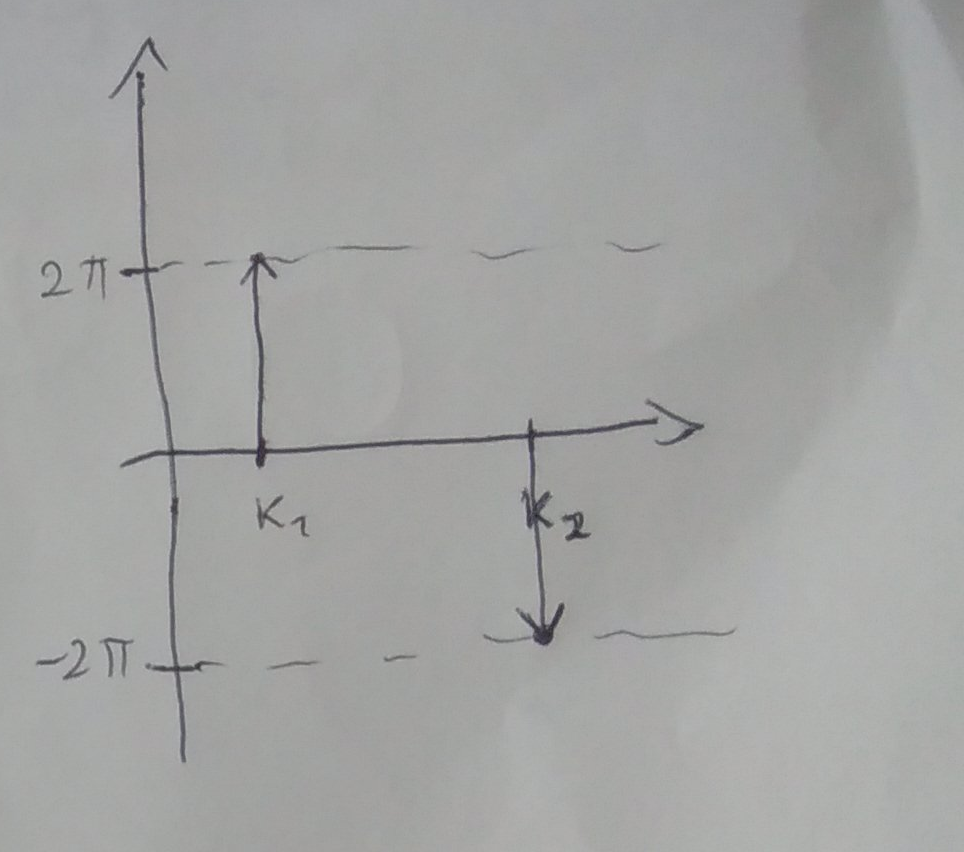 2π
K₁
K₂
-2π